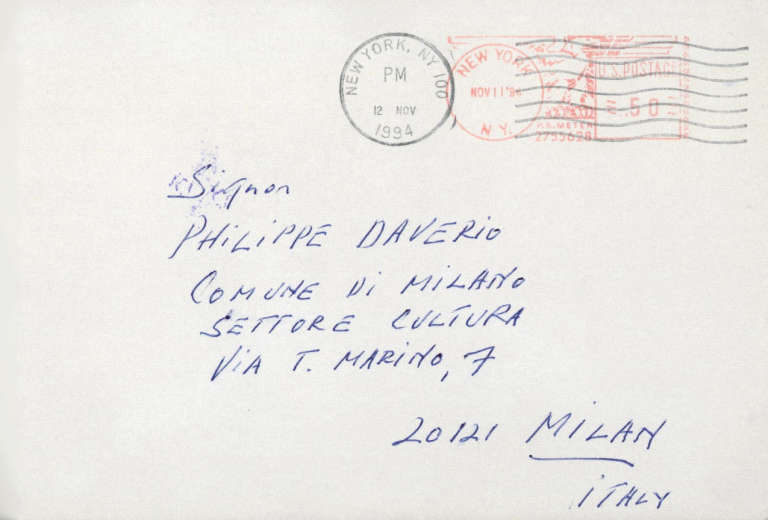 NEW YORK, NY 100
PM
12 NOV
1994
NEW YORK
NOV 11 '94
N.Y.
U.S. POSTAGE
.50
2755628
Signor
PHiLiPPE DAVERiO
COMUNE Di MiLANO
SETTORE CULTURA
ViA T. MARiNO, 7
20121 MiLAN
iTALY